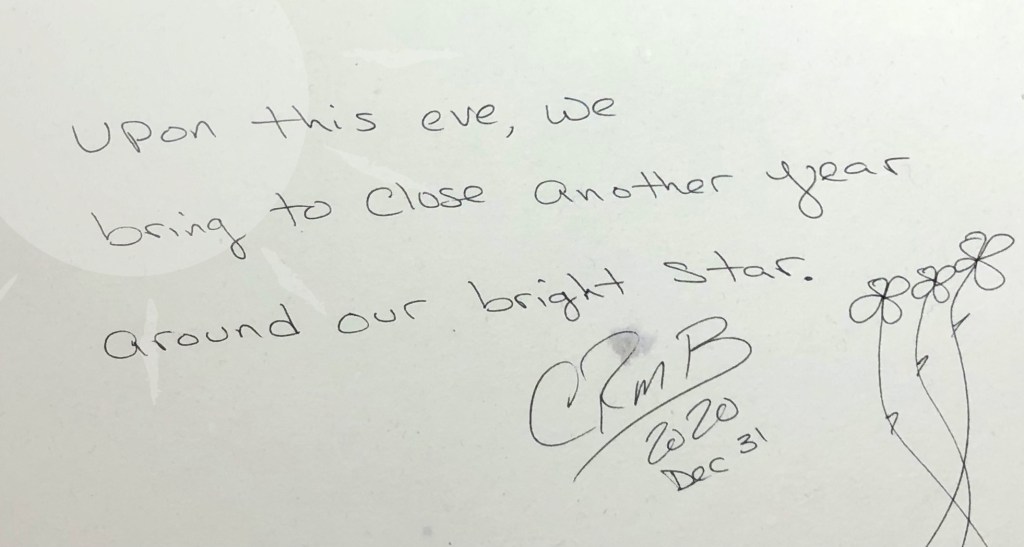 Upon this eve, we
bring to close another year
around our bright star.
CRmB
2020
Dec 31